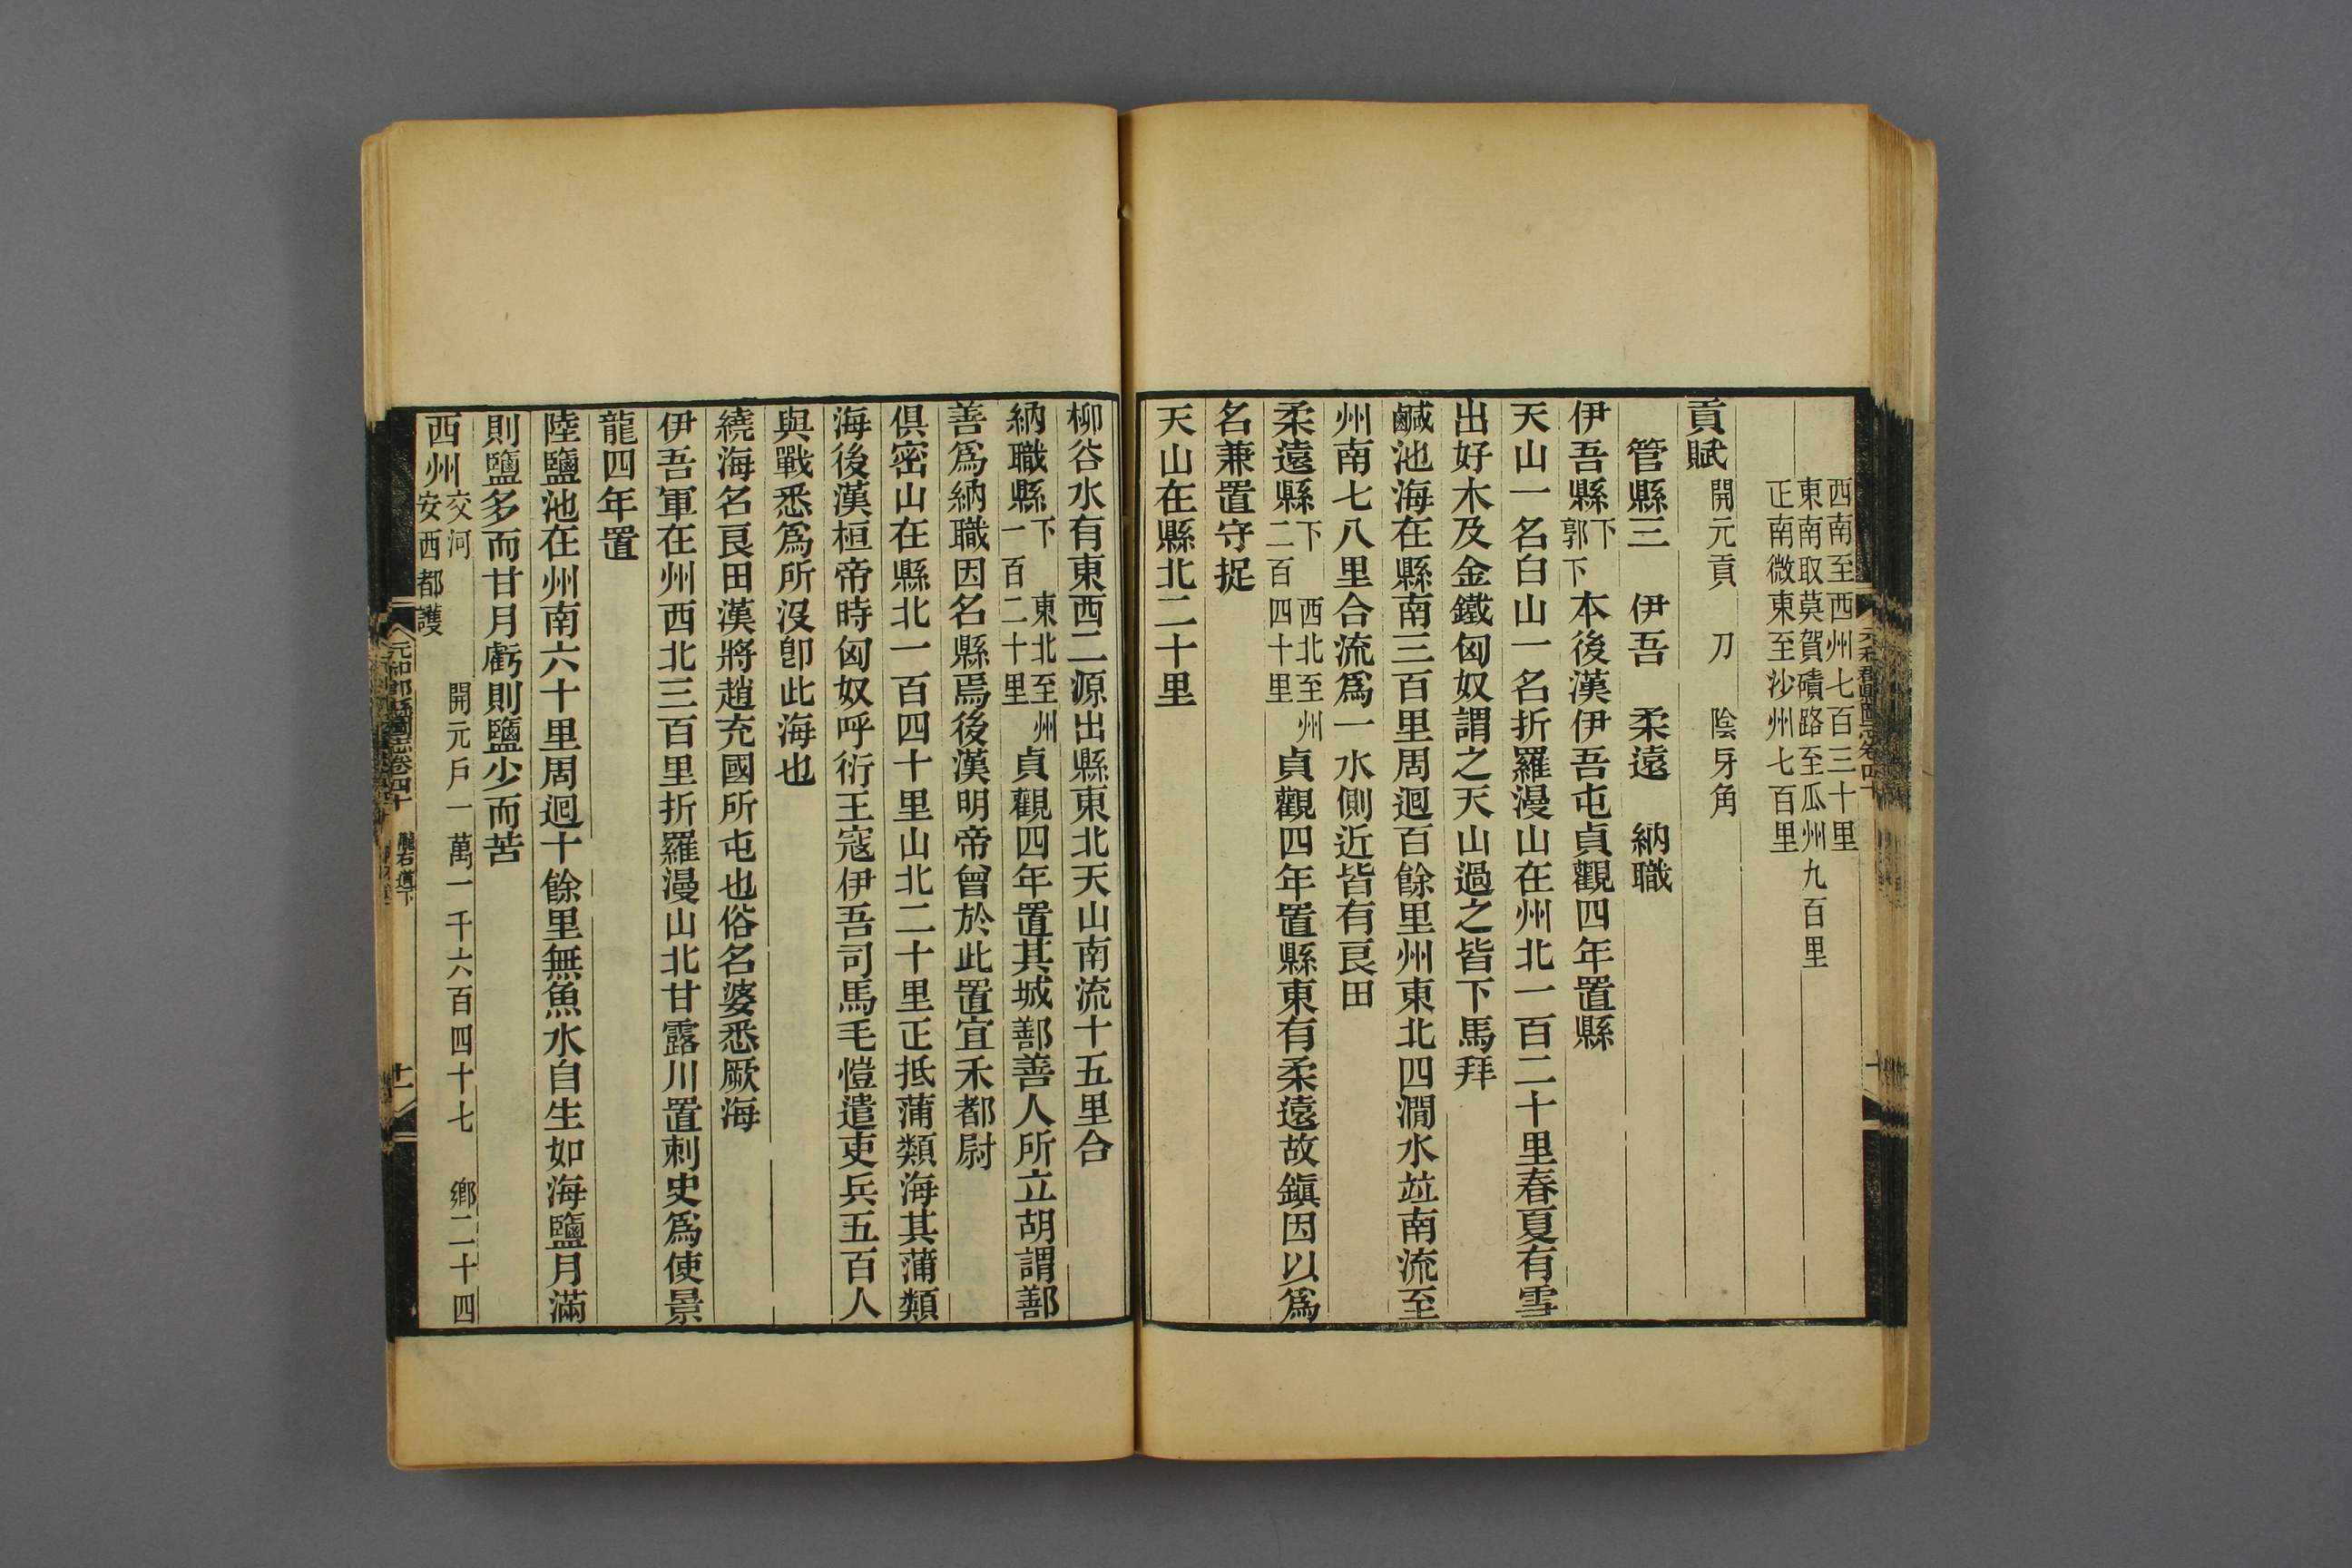 西南至西州七百三十里
東南取莫賀磧路至瓜州九百里
正南微東至沙州七百里
貢賦 開元貢 刀 陰牙角
管縣三 伊吾 柔遠 納職
伊吾縣 下 郭下 本後漢伊吾屯貞觀四年置縣
天山一名白山一名折羅漫山在州北一百二十里春夏有雪
出好木及金鐵匈奴謂之天山過之皆下馬拜
鹹池海在縣南三百里周迴百餘里州東北四澗水竝南流至
州南七八里合流爲一水側近皆有良田
柔遠縣 下 西北至州二百四十里 貞觀四年置縣東有柔遠故鎭因以爲
名兼置守捉
天山在縣北二十里
柳谷水有東西二源出縣東北天山南流十五里合
納職縣 下 東北至州一百二十里 貞觀四年置其城鄯善人所立胡謂鄯
善爲納職因名縣焉後漢明帝曾於此置宜禾都尉
俱密山在縣北一百四十里山北二十里正抵蒲類海其蒲類
海後漢桓帝時匈奴呼衍王寇伊吾司馬毛愷遣吏兵五百人
與戰悉爲所沒卽此海也
繞海名良田漢將趙充國所屯也俗名婆悉厥海
伊吾軍在州西北三百里折羅漫山北甘露川置刺史爲使景
龍四年置
陸鹽池在州南六十里周迴十餘里無魚水自生如海鹽月滿
則鹽多而甘月虧則鹽少而苦
西州 交河 安西都護 開元戶一萬一千六百四十七 鄉二十四
元和郡縣圖志卷四十 隴右道下 十一